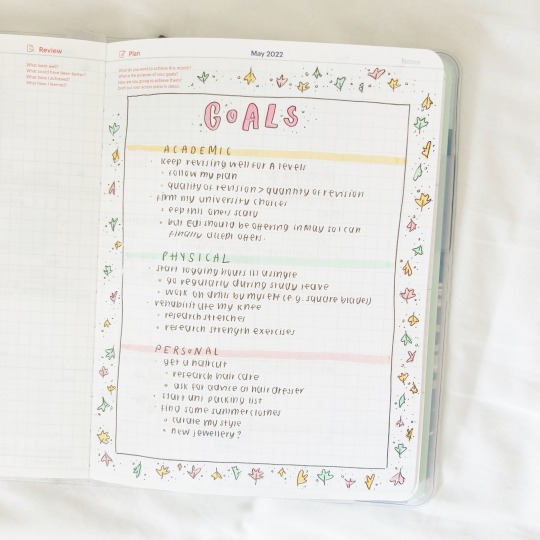 Review
What went well?
What could have been better?
What have I achieved?
What have I learned?
Plan
May 2022
Notes
What do you want to achieve this month?
What is the purpose of your goals?
How are you going to achieve them?
GOALS
ACADEMIC
keep revising well for A levels
follow my plan
quality of revision > quantity of revision
firm my university choices
eep this one's scary
but Edi should be offering in May so I can
finally accept offers.
PHYSICAL
start logging hours in a
go regularly during study leave
work on drills by myself (e.g. square blades)
rehabilitate my knee
research stretches
research strength exercises
PERSONAL
get a haircut
research hair care
ask for advice @ hair dresser
start uni packing list
find some summer clothes
curate my style
new jewellery?